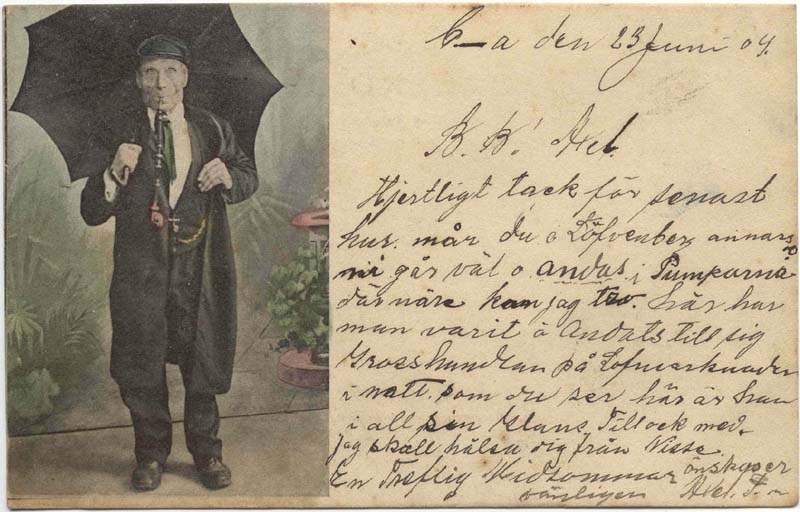 C–a den 23 Juni 04.
B. B.! Axel.
Hjertligt tack för senast
hur mår du o Löfvenberg annars
ni går väl o andas i Pumparna
där nära kan jag tro. här har
man varit o Andats till sig
Grosshandlan på
i natt. som du ser här är han
i all sin Glans. Till ock med.
jag skall hälsa dig från Nisse.
En Treflig Midsommar önskaer
vänligen Axel. F.